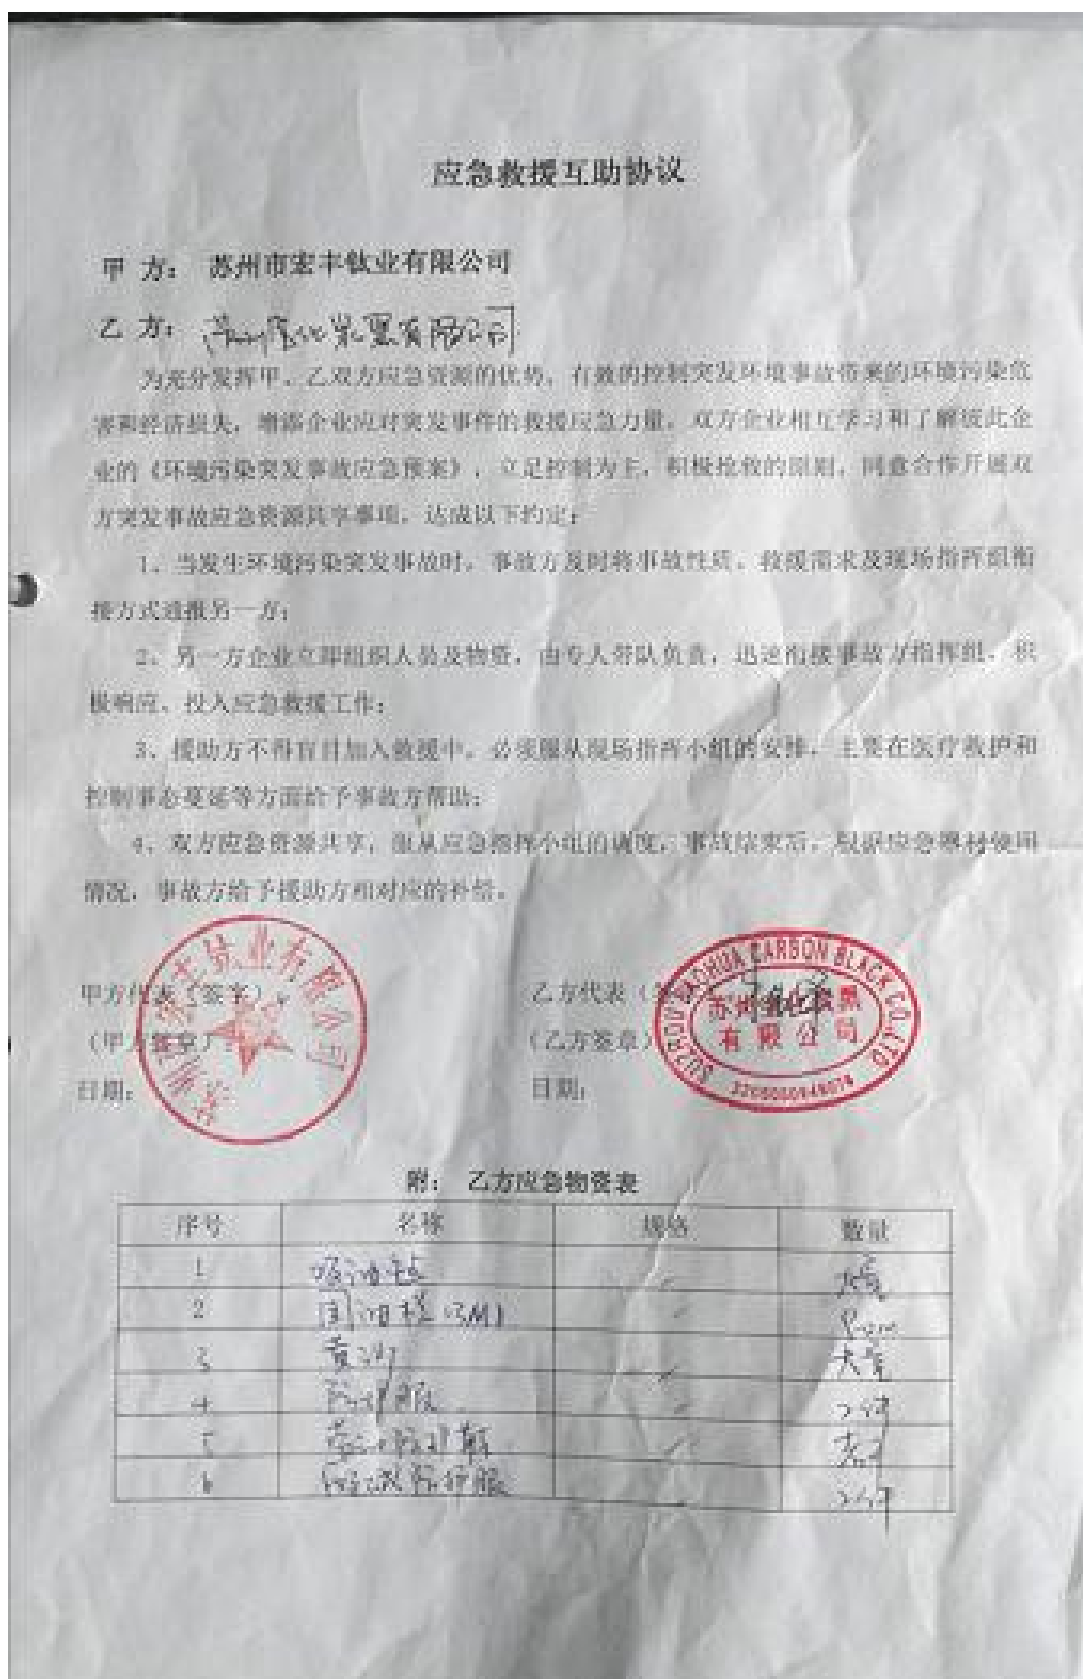 应急救援互助协议
甲 方： 苏州市宏丰钛业有限公司
乙 方： 苏州宝化炭黑有限公司
为充分发挥甲、乙双方应急资源的优势，有效的控制突发环境事故带来的环境污染危
害和经济损失，增添企业应对突发事件的救援应急力量，双方企业相互学习和了解彼此企
业的《环境污染突发事故应急预案》，立足控制为主，积极抢救的原则，同意合作开展双
方突发事故应急资源共享事项，达成以下约定：
1、当发生环境污染突发事故时，事故方及时将事故性质、救援需求及现场指挥组衔
接方式通报另一方；
2、另一方企业立即组织人员及物资，由专人带队负责，迅速衔接事故方指挥组，积
极响应，投入应急救援工作；
3、援助方不得盲目加入救援中，必须服从现场指挥小组的安排，主要在医疗救护和
控制事态蔓延等方面给予事故方帮助；
4、双方应急资源共享，服从应急指挥小组的调度，事故结束后，根据应急器材使用
情况，事故方给予援助方相对应的补偿。
甲方代表（签字）： 乙方代表（签字）
（甲方签章）： （乙方签章）
日期： 日期：
钛业有限公司
SUZHOU BAOHUA CARBON BLACK CO.,LTD
苏州宝化炭黑
有限公司
附： 乙方应急物资表
序号 名称 规格 数量
1 吸油毡 / 大量
2 围油栏
3 黄沙 / 大量
4 防护服 /
5
6 防护服 /